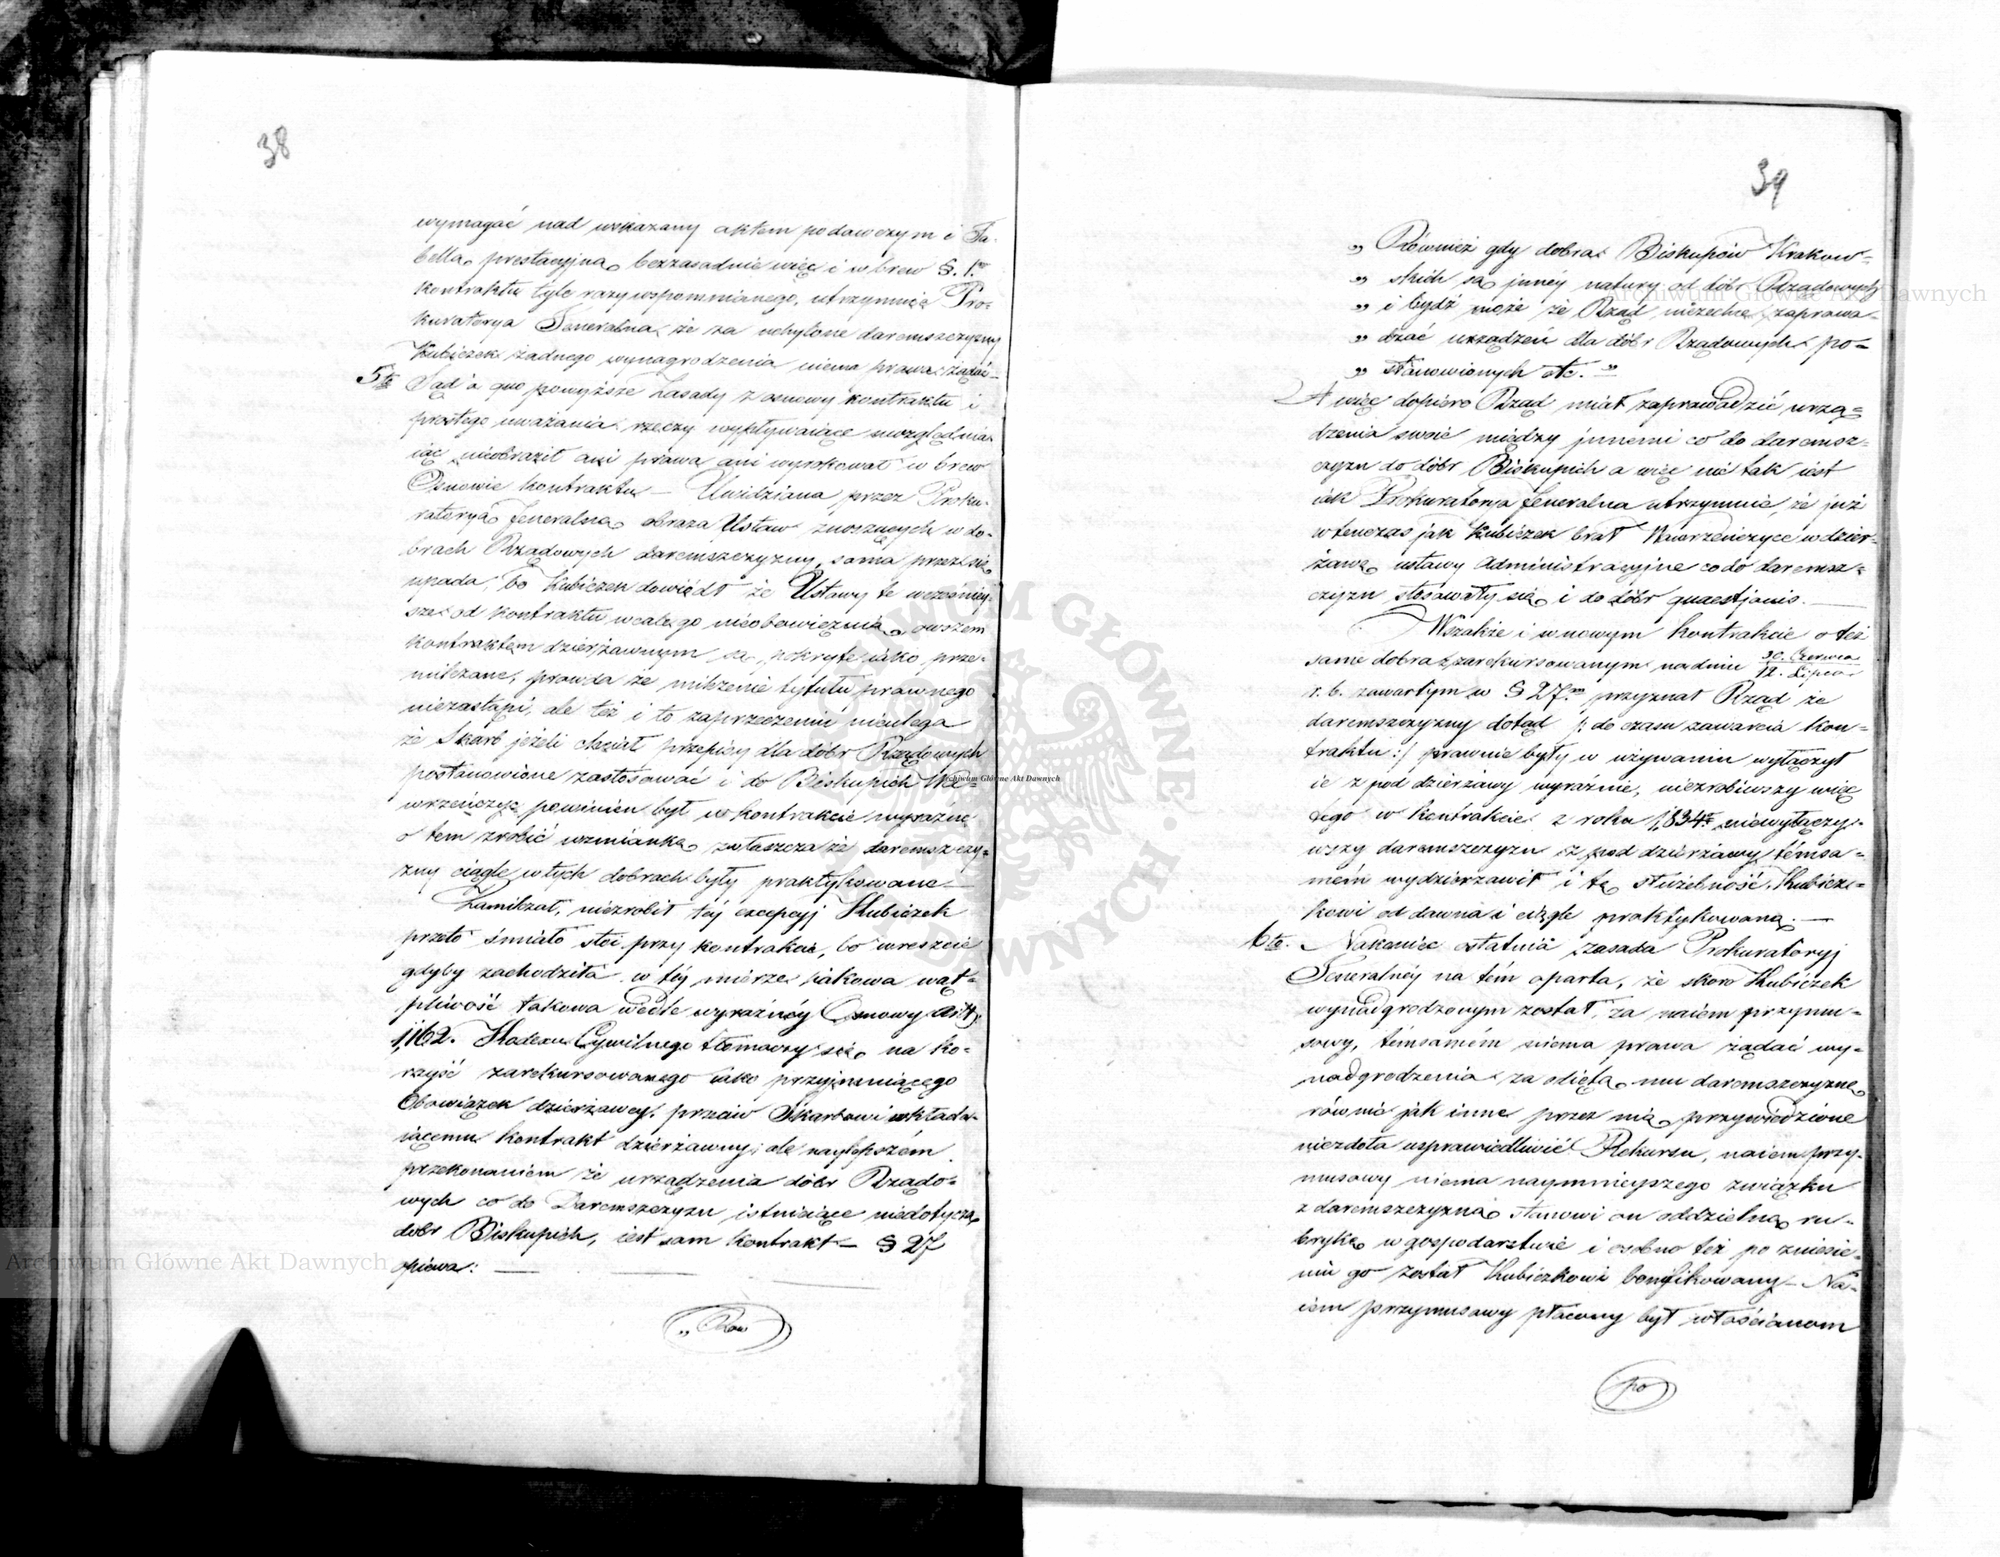 38
wymagać nad wskazany aktem podawczym i Ta-
bellą prestacyjną bezzasadnie więc i wbrew §. 1º
kontraktu tyle razy wspomnianego, utrzymuie Pro-
kuratorya Generalna że za uchylone daremszczyzny
Kubiczek żadnego wynagrodzenia niema prawa żądać –
5to Sąd a quo powyższe zasady z osnowy kontraktu i
prostego uważania rzeczy wypływaiące uwzględnia-
iąc nieobraził ani prawa ani wyrokował wbrew
Osnowie kontraktu – Uwidziana przez Proku-
ratoryą Generalną obraza Ustaw znoszących w do-
brach Rządowych daremszczyzny, sama przez się
upada, bo Kubiczek dowiódł że Ustawy te wcześniey-
sze od kontraktu wcale go nieobowięzuią, owszem
kontraktem dzierżawnym są pokryte jako prze-
milczane, prawda że milczenie tytułu prawnego
niezastąpi, ale też i to zaprzeczeniu nieulega
że Skarb jeżeli chciał przepisy dla dóbr Rządowych
postanowione zastosować i do Biskupich Wa-
wrzeńczyc powinien był w kontrakcie wyraźnie
o tem zrobić wzmiankę zwłaszcza że daremszczy-
zny ciągle w tych dobrach były praktykowane –
Zamilczał, niezrobił tej excepcyj Kubiczek
przeto śmiało stoi przy kontrakcie, bo wreszcie
gdyby zachodziła w téy mierze iakowa wąt-
pliwość takowa wedle wyraźnéy Osnowy Art:
1,162. Kodexu Cywilnego tłomaczy się na ko-
rzyść zarekursowanego iako przyjmuiącego
Obowiązek dzierżawcy, przeciw Skarbowi wkłada-
iącemu kontrakt dzierżawny; ale naylepszém
przekonaniem że urządzenia dóbr Rządo-
wych co do Daremszczyzn istnieiące niedotyczą
dóbr Biskupich, iest sam kontrakt – § 27
opiewa: —
„ Rów
39
„ Również gdy dobra Biskupów Krakow-
„ skich są innéy natury od dóbr Rządowych
„ i bydź może że Rząd niezechce zaprowa-
„ dzać urządzeń dla dóbr Rządowych po-
„ stanowionych etc. „
A więc dopiero Rząd miał zaprowadzić urzą-
dzenia swoie między innemi co do daremsz-
czyzn do dóbr Biskupich a więc nie tak iest
iak Prokuratorya Generalna utrzymuie, że już
wtenczas jak Kubiczek brał Wawrzeńczyce w dzier-
żawę ustawy administracyjne co do daremsz-
czyzn stosowały się i do dóbr quaestjonis. —
Wszakże i w nowym kontrakcie o też
same dobra z zarekursowanym na dniu 30. Czerwca / 12. Lipca
r. b. zawartym w § 27.m przyznał Rząd że
daremszczyzny dotąd /: do czasu zawarcia kon-
traktu :/ prawnie były w używaniu wyłączył
ie z pod dzierżawy wyraźnie, niezrobiwszy więc
tego w kontrakcie z roku 1,834º niewyłączy-
wszy daremszczyzn z pod dzierżawy témsa-
mém wydzierżawił i tę służebność Kubicz-
kowi od dawna i ciągle praktykowaną. —
6to. Nakoniec ostatnia zasada Prokuratoryj
Generalnéy na tém oparta, że skoro Kubiczek
wynadgrodzonym został za naiem przymu-
sowy, témsamém niema prawa żądać wy-
nadgrodzenia za odiętą mu daremszczyznę
równie jak inne przez nią przywiedzione
niezdoła usprawiedliwić Rekursu, naiem przy-
musowy niema naymnieyszego związku
z daremszczyzną stanowi on oddzielną ru-
brykę w gospodarstwie i osobno też po zniesie-
niu go został Kubiczkowi bonifikowany – Na-
iem przymusowy płacony był włościanom
po
Archiwum Główne Akt Dawnych
Archiwum Główne Akt Dawnych
Archiwum Główne Akt Dawnych